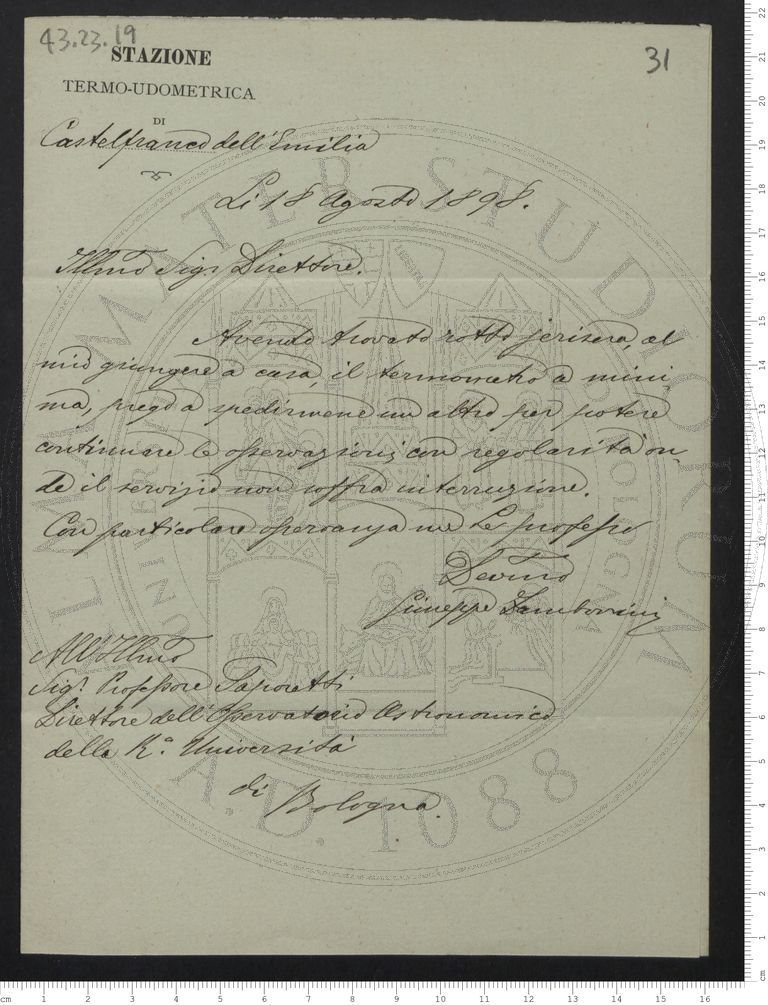 43.23.19
31
STAZIONE
TERMO-UDOMETRICA
DI
Castelfranco dell'Emilia
Li 18 Agosto 1898.
Illmo Sigr Direttore.
Avendo trovato rotto jerisera, al
mio giungere a casa, il termometro a mini
ma, prego a spedirmene un altro per potere
continuare le osservazioni con regolarità on
de il servizio non soffra interruzione.
Con particolare osservanza me Le professo
Devmo
Giuseppe Tamborini
All'Illmo
Sigr Professore Saporetti
Direttore dell'Osservatorio Astronomico
della Ra Università
di Bologna.
ALMA MATER STUDIORUM
A.D. 1088